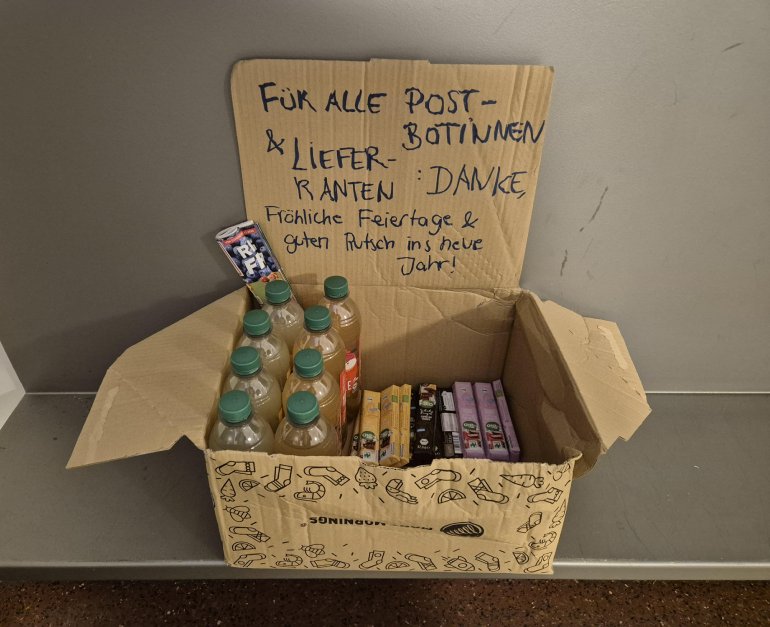 FÜR ALLE POST-
BOTINNEN
& LIEFER-
RANTEN : DANKE,
Fröhliche Feiertage &
guten Rutsch ins neue
Jahr!
MORNINGS